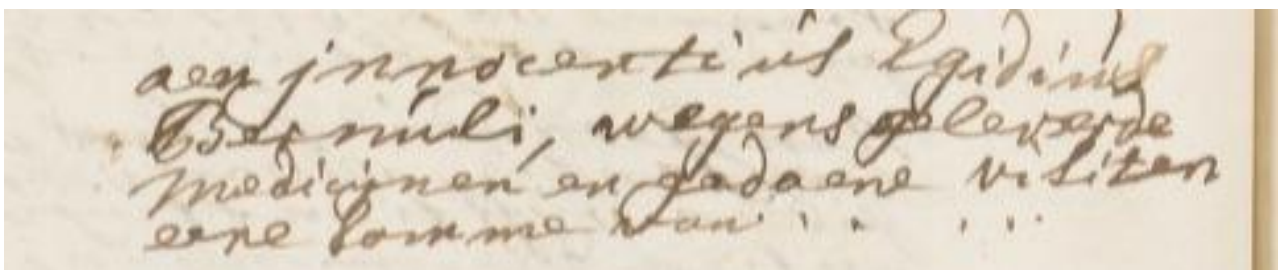 aen jnnocentius Egidius
Bernuli, wegens geleverde
medicijnen en gadaene visiten
eene somme van . . . . .